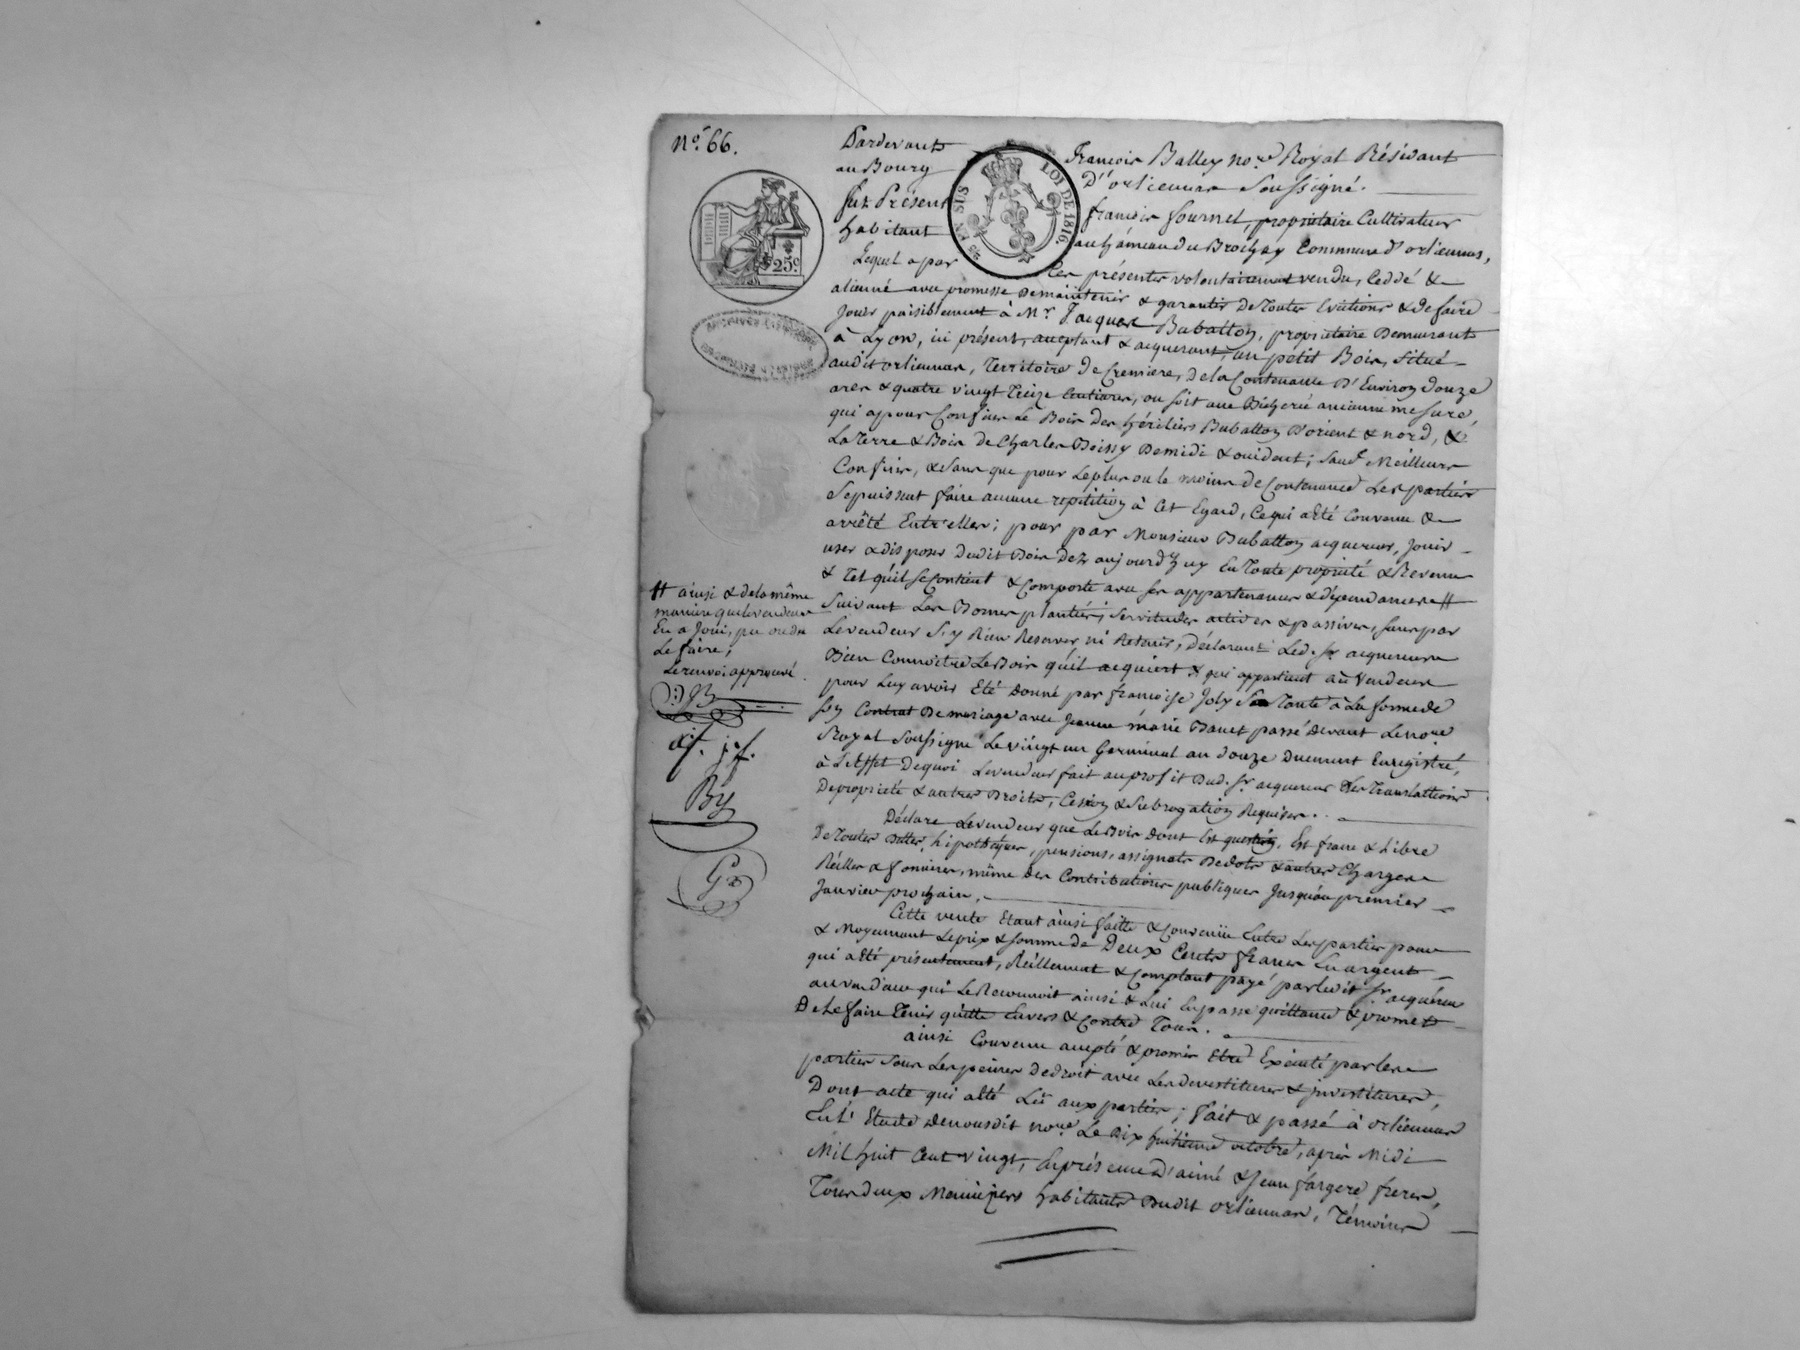 n.º 66.
Pardevant François Balley no.re Royal Résidant
au Bourg D'orliennas Soussigné.
fut Présent françois fournel, propriétaire Cultivateur
habitant au hâmeau du Brochay Commune d'orliennas,
Lequel a par Ces présentes volontairement vendu, Ceddé &
alienné avec promesse de maintenir & garantir de Toutes Evictions & de faire
Jouir paisiblement à Mr Jacques Babalton, propriétaire Demeurant
à Lyon, ici présent, acceptant & acquerant, un petit Bois, Situé
audit orliennas, Territoire de Cremiere, de la Contenance D'Environ douze
ares & quatre vingt Treize Centiares, ou soit une Bicherée ancienne mesure
qui a pour Confins le Bois des héritiers Babalton D'orient & nord, &
La Terre & Bois de Charles Boissy De midi & occident; Sauf Meilleurs
Confins, & Sans que pour le plus ou le moins de Contenance Les parties
Se puissent faire aucune repétition à Cet Egard, Ce qui a Eté Convenu &
arrêté Entr'elles; pour par Monsieur Babalton acquereur, Jouir
user & disposer dudit Bois dez aujourd'huy En Toute propriété & Revenu
& Tel qu'il se Contient & Comporte avec ses appartenances & dépendances #
Suivant Les Bornes plantées, Servitudes actives & passives, sans par
Le vendeur S'y Rien Reserver ni Retenir, Déclarant Led. Sr acquereur
Bien Connoitre Le Bois qu'il acquiert & qui appartient au Vendeur
pour Luy avoir Eté Donné par françoise Joly Sa Tante à La forme de
Son Contrat De mariage avec Jeanne marie Banet passé devant Le no.re
Royal Soussigné Le vingt un Germinal an douze Duement Enregistré,
à L'Effet De quoi Le vendeur fait au profit Dud. Sr acquereur Les Translations
De propriété & autres Droits, Cession & Subrogation Requises.
Déclare Le vendeur que Le Bois dont Est question, Est franc & Libre
De Toutes Dettes, hipothèques, pensions, assignats De dots & autres Charges
Réelles & foncieres, même des Contributions publiques Jusqu'au premier
Janvier prochain.
Cette vente Etant ainsi faitte & Convenüe Entre Les parties pour
& Moyennant Le prix & Somme de Deux Cents francs En argent
qui a Eté présentement, Réellement & Comptant payé par Ledit Sr acquéreur
au vendeur qui Le Reconnoit ainsi & Lui En passe quittance & promet
De Le faire Tenir quitte Envers & Contre Tous.
ainsi Convenu accepté & promis Etre Exécuté par les
parties Sous Les peines De droit avec Les Devestitures & investitures,
Dont acte qui a Eté Lû aux parties; fait & passé à orliennas
En L'Etude De nousdit no.re Le Dix huitieme octobre, après Midi
Mil huit Cent vingt, En présence d'aimé & Jean fargere freres,
Tous deux Menuisiers habitants Dudit orliennas, Témoins
# ainsi & de la même
maniere que le vendeur
En a Joui, pu ou du
Le faire,
Le renvoi approuvé.
af. jf.
By
25c
EN SUS
LOI DE 1816